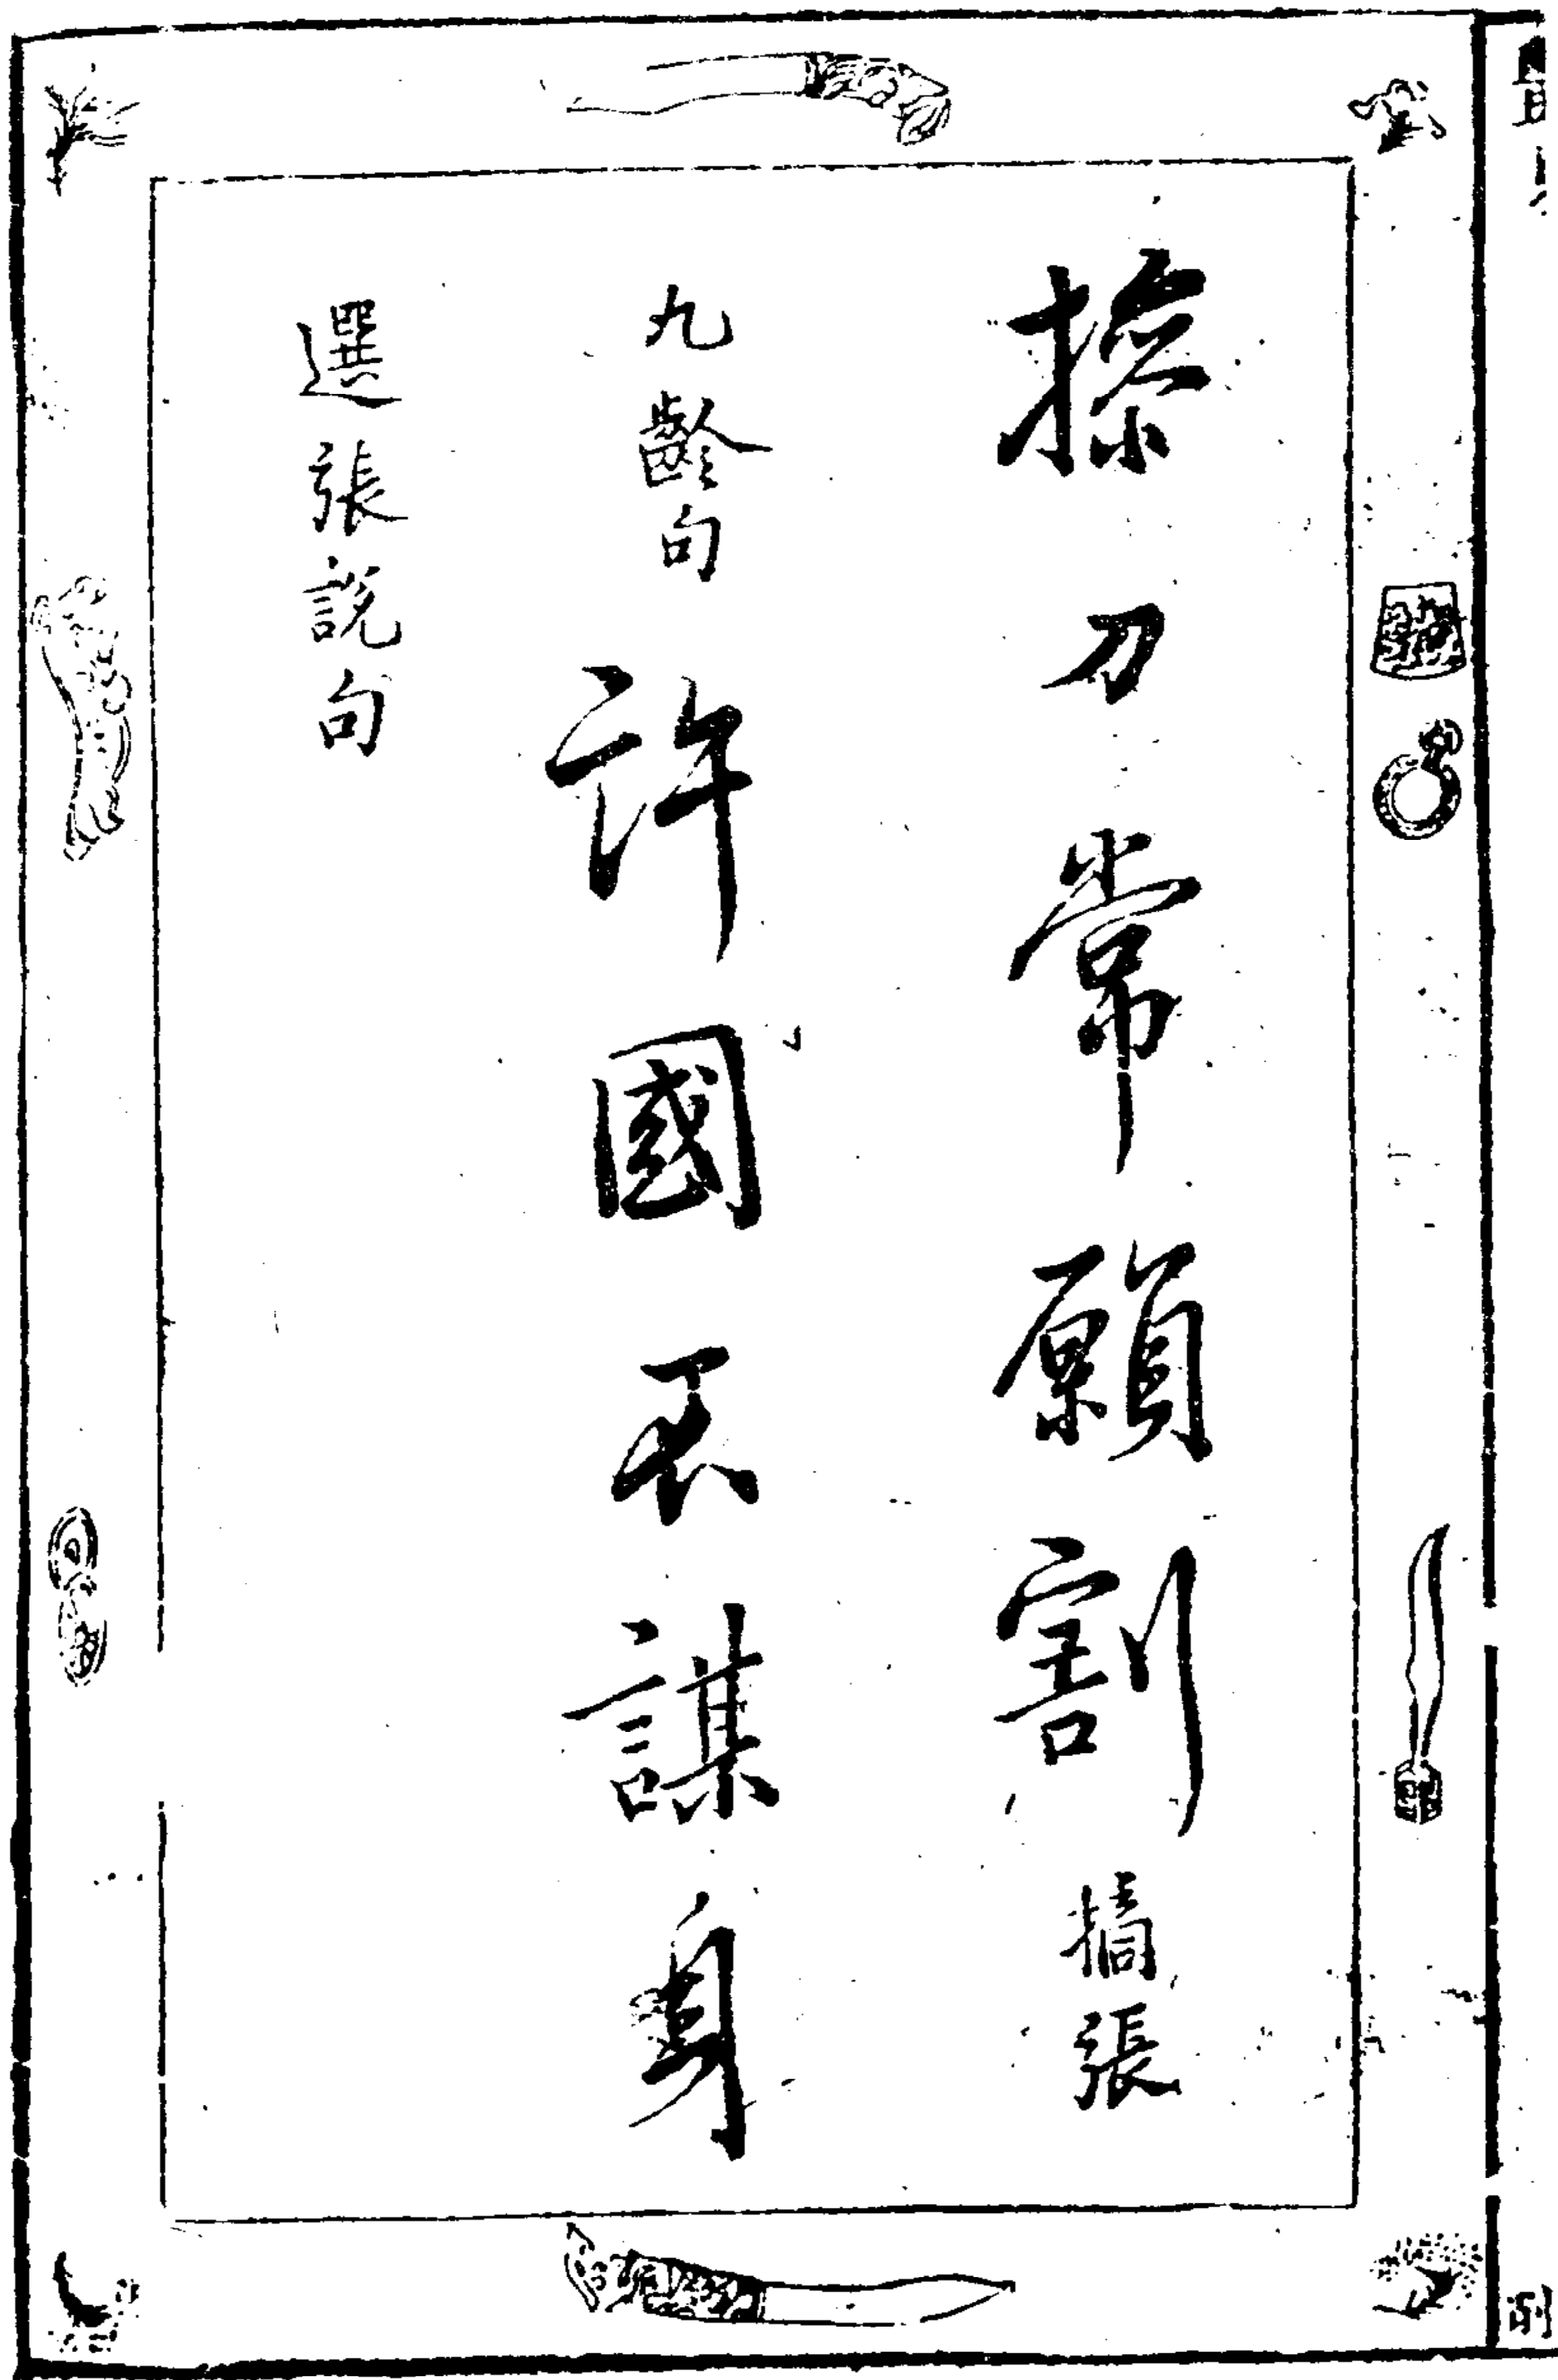 操刀常願割 摘張
九齡句 許國不謀身
選張説句